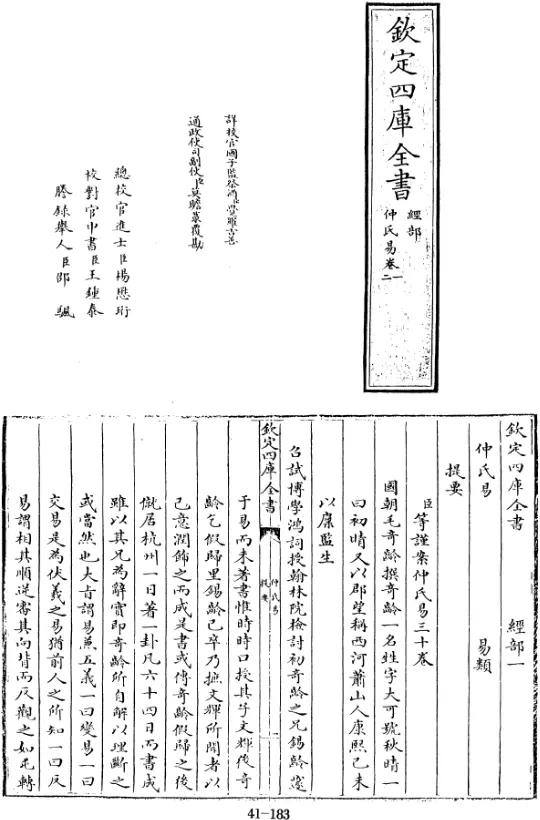 欽定四庫全書
經部
仲氏易卷一
二
詳校官國子監祭酒臣覺羅吉善
通政使司副使臣莫瞻菉覆勘
總校官進士臣楊懋珩
校對官中書臣王鍾泰
謄錄舉人臣邵颿
欽定四庫全書 經部一
仲氏易 易類
提要
臣等謹案仲氏易三十卷
國朝毛奇齡撰奇齡一名甡字大可號秋晴一
曰初晴又以郡望稱西河蕭山人康熙己未
以廩監生
召試博學鴻詞授翰林院檢討初奇齡之兄錫齡邃
于易而未著書惟時時口授其子文輝後奇
齡乞假歸里錫齡已卒乃摭文輝所聞者以
己意潤飾之而成是書或傳奇齡假歸之後
僦居杭州一日著一卦凡六十四日而書成
雖以其兄為辭實即奇齡所自解以理斷之
或當然也大旨謂易兼五義一曰變易一曰
交易是為伏羲之易猶前人之所知一曰反
易謂相其順逆審其向背而反觀之如屯轉
欽定四庫全書
仲氏易
提要
一
41-183